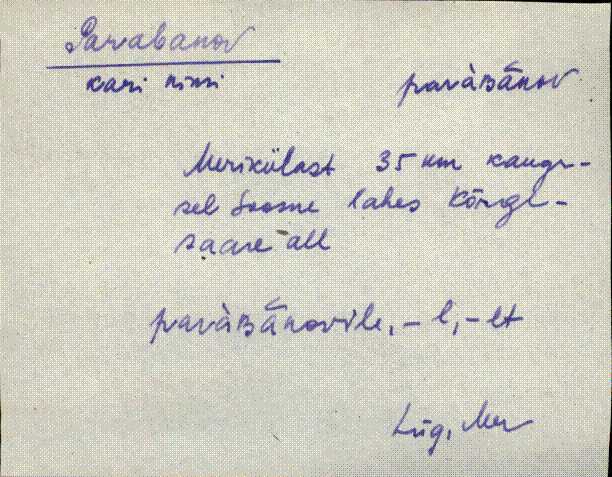 Parabanov
kari nimi
paràʙā́nov
Merikülast 35 km kauge-
sel Soome lahes Kõrge-
saare all
paràʙā́novile, -l, -lt
Lüg, Mer